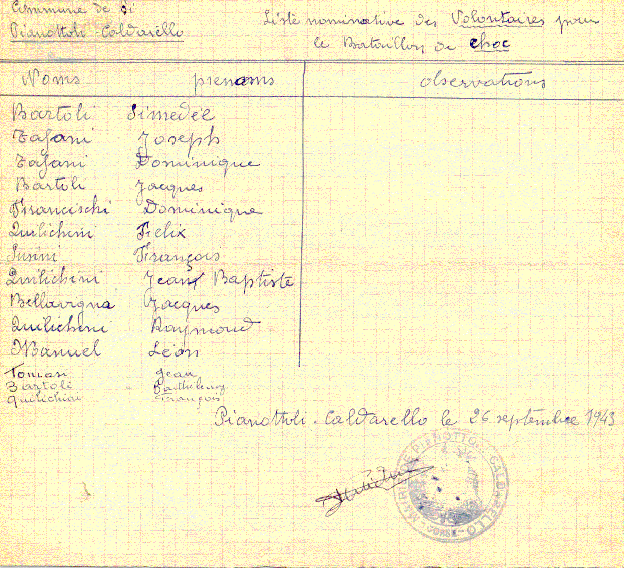 Commune de
Pianottoli-Caldarello
Liste nominative des Volontaires pour
le Bataillon de choc
Noms prenoms observations
Bartoli Simedei
Tafani Joseph
Tafani Dominique
Bartoli Jacques
Francischi Dominique
Quilichini Felix
Susini François
Quilichini Jean Baptiste
Bellavigna Jacques
Quilichini Raymond
Manuel Léon
Tomasi Jean
Bartoli Barthélemy
Quilichini François
Pianottoli-Caldarello le 26 septembre 1943
MAIRIE DE PIANOTTOLI-CALDARELLO
CORSE